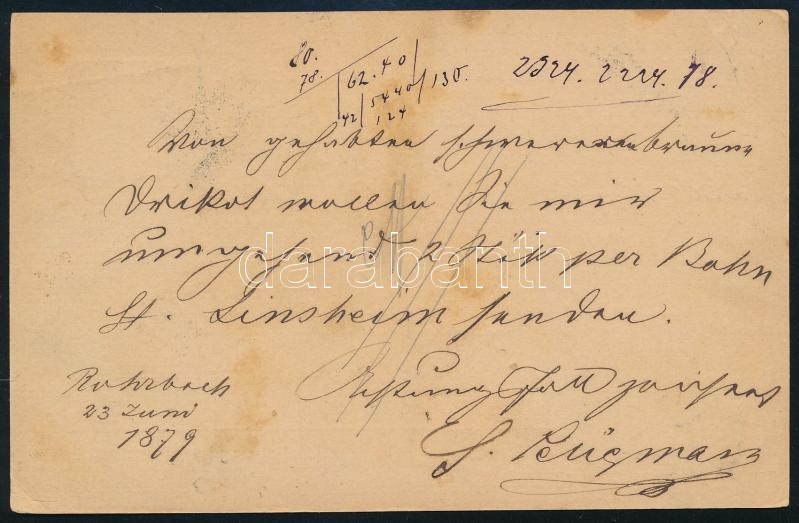 80.
78.
62.40
5440 / 130.
42 124
2324. 2224. 78.
Von gehabten schweren braun
Trikot wollen Sie mir
umgehend 2 Stük per Bahn
St. Sinsheim senden.
Rohrbach
23 Juni
1879
Achtungsvoll zeichnet
darabanth